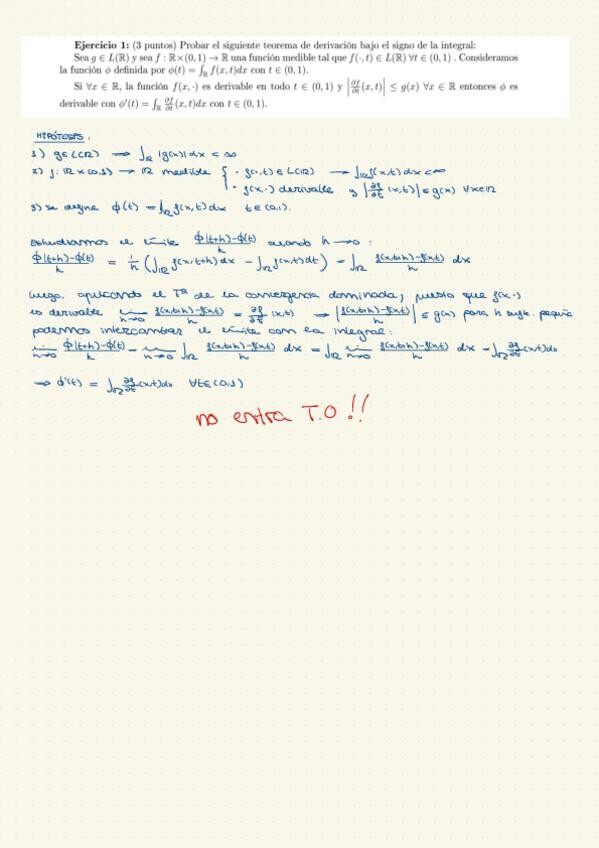 Ejercicio 1: (3 puntos) Probar el siguiente teorema de derivación bajo el signo de la integral:
Sea g ∈ L(ℝ) y sea f : ℝ×(0,1) → ℝ una función medible tal que f(·,t) ∈ L(ℝ) ∀t ∈ (0,1) . Consideramos
la función ϕ definida por ϕ(t) = ∫_ℝ f(x,t)dx con t ∈ (0,1).
Si ∀x ∈ ℝ, la función f(x,·) es derivable en todo t ∈ (0,1) y |∂f/∂t (x,t)| ≤ g(x) ∀x ∈ ℝ entonces ϕ es
derivable con ϕ'(t) = ∫_ℝ ∂f/∂t (x,t)dx con t ∈ (0,1).
HIPÓTESIS.
1) g∈L(ℝ) → ∫_ℝ |g(x)| dx < ∞
2) f: ℝ×(0,1) → ℝ medible { · f(·,t) ∈ L(ℝ) → ∫_ℝ f(x,t) dx < ∞
· f(x,·) derivable y |∂f/∂t (x,t)| ≤ g(x) ∀x∈ℝ
3) se define ϕ(t) = ∫_ℝ f(x,t) dx t∈(0,1).
Estudiamos el límite (ϕ(t+h)-ϕ(t))/h cuando h→0 :
(ϕ(t+h)-ϕ(t))/h = 1/h (∫_ℝ f(x,t+h) dx - ∫_ℝ f(x,t) dt) = ∫_ℝ (f(x,t+h)-f(x,t))/h dx
Luego, aplicando el Tª de la convergencia dominada, puesto que f(x,·)
es derivable lim_{h→0} (f(x,t+h)-f(x,t))/h = ∂f/∂t (x,t) → |(f(x,t+h)-f(x,t))/h| ≤ g(x) para h sufic. pequeño
podemos intercambiar el límite con la integral:
lim_{h→0} (ϕ(t+h)-ϕ(t))/h = lim_{h→0} ∫_ℝ (f(x,t+h)-f(x,t))/h dx = ∫_ℝ lim_{h→0} (f(x,t+h)-f(x,t))/h dx = ∫_ℝ ∂f/∂t (x,t) dx
→ ϕ'(t) = ∫_ℝ ∂f/∂t (x,t) dx ∀t∈(0,1)
no entra T.O!!